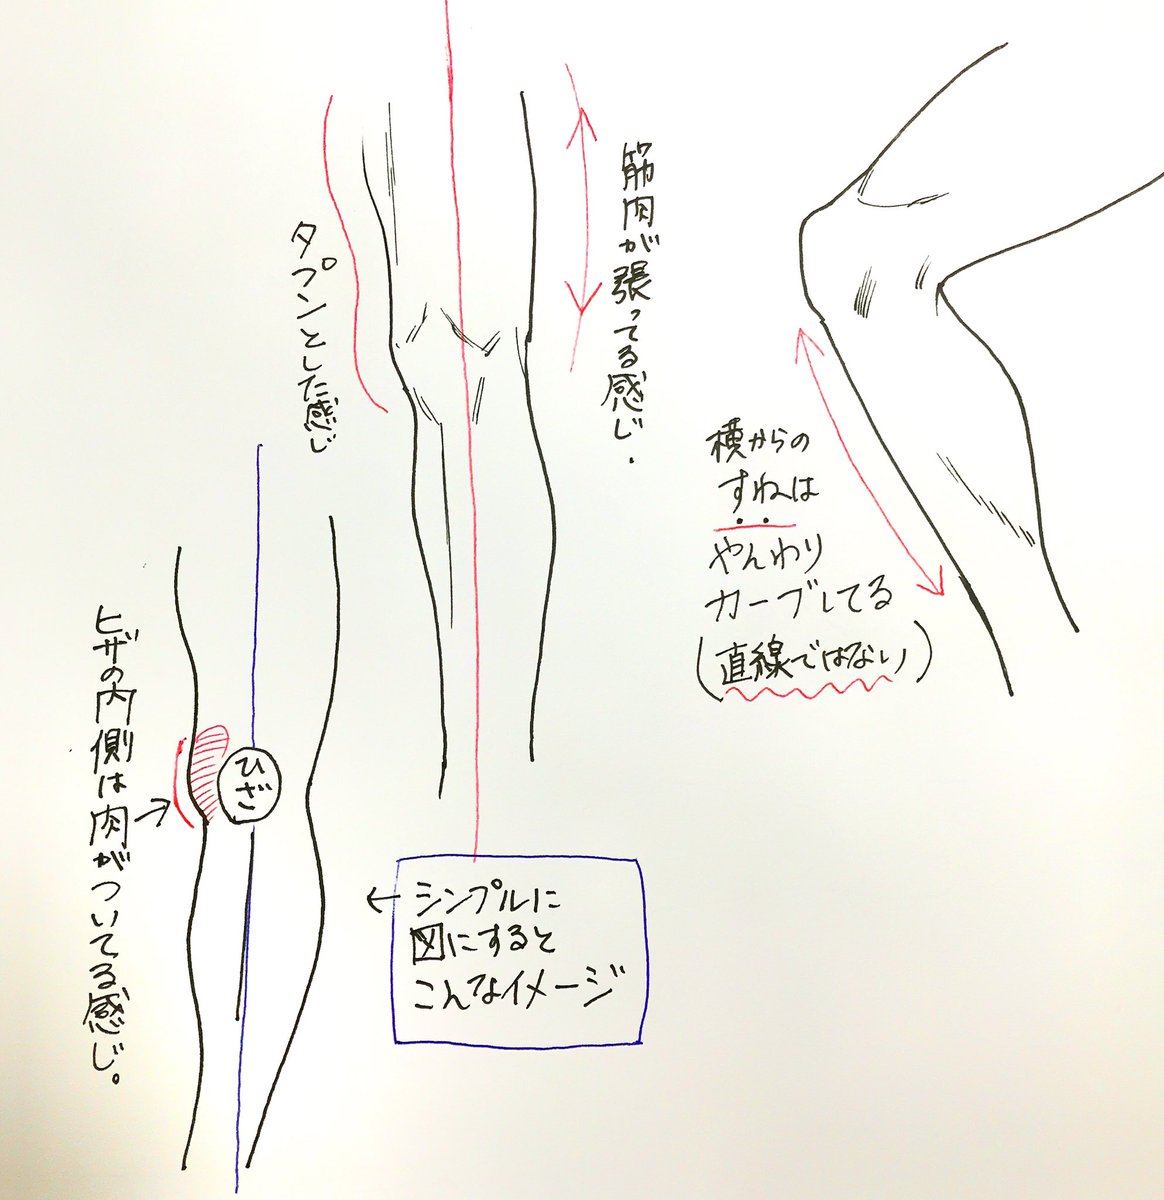 筋肉が張ってる感じ.
タプンとした感じ
横からの
すねは
やんわり
カーブしてる
(直線ではない)
ヒザの内側は肉がついてる感じ。
ひざ
シンプルに
図にすると
こんなイメージ